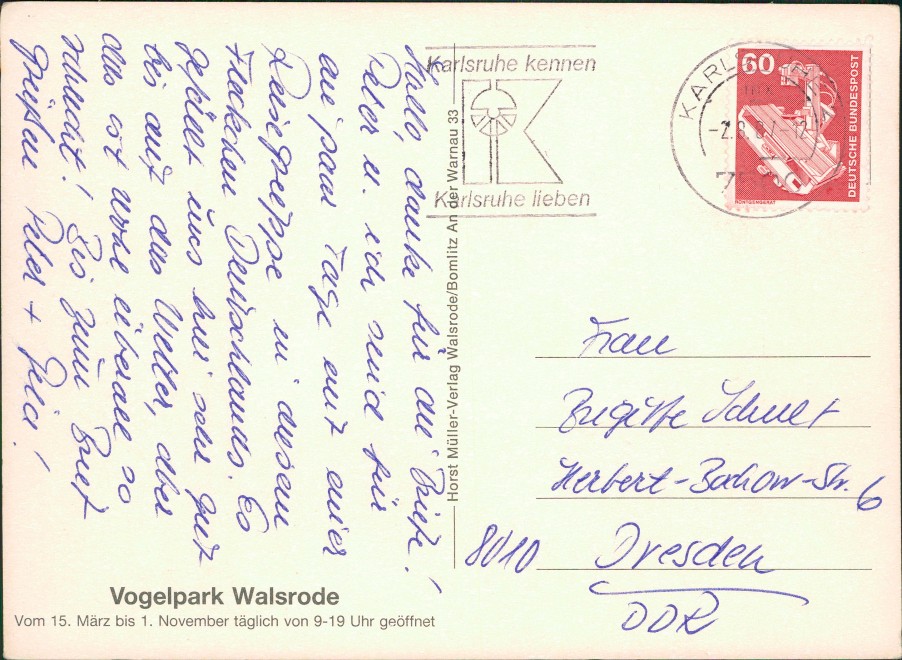 Hallo, danke für die Briefe!
Peter u. ich sind für
ein paar Tage mit einer
Reisegruppe in diesem
Fleckchen Deutschlands. Es
gefällt uns hier sehr gut
bis auf das Wetter, aber
das ist wohl überall so
schlecht! Bis zum Brief
grüßen Peter +
Vogelpark Walsrode
Vom 15. März bis 1. November täglich von 9-19 Uhr geöffnet
Horst Müller-Verlag Walsrode/Bomlitz An der Warnau 33
Karlsruhe kennen
Karlsruhe lieben
KARLS
60
DEUTSCHE BUNDESPOST
RÖNTGENGERÄT
Frau
Brigitte
Herbert-Bochow-Str. 6
8010 Dresden
DDR